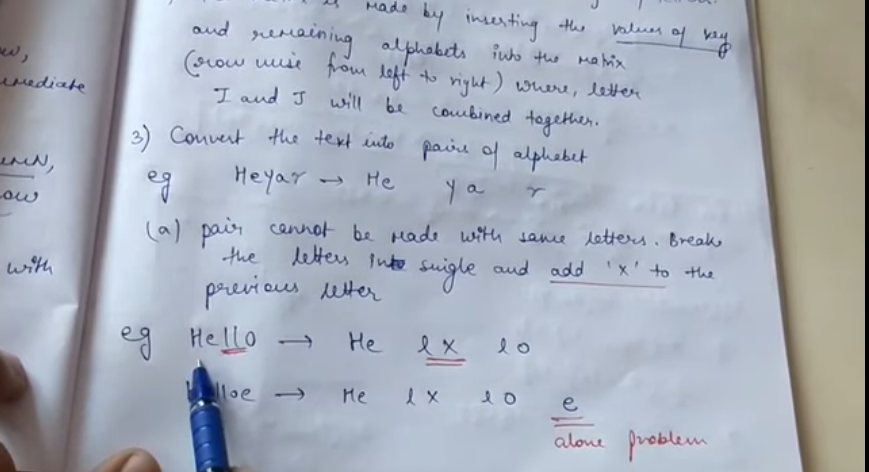 made by inserting the values of key
and remaining alphabets into the matrix
(row wise from left to right) where, letter
I and J will be combined together.
3) Convert the text into pairs of alphabet
eg Heyar → He ya r
(a) pair cannot be made with same letters. Break
the letters into single and add 'x' to the
previous letter
eg Hello → He lx lo
lloe → He lx lo e
alone problem
mediate
ow
with